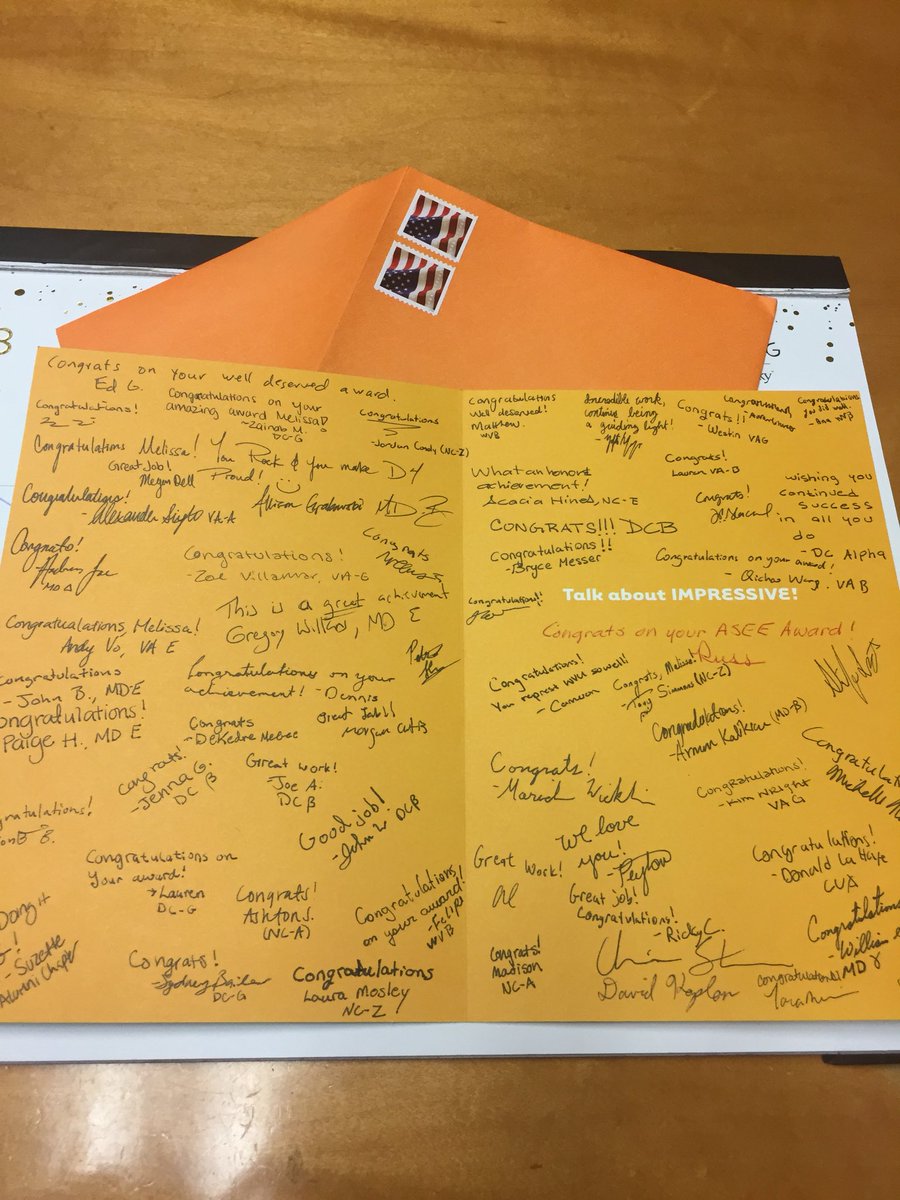 Congrats on your well deserved award.
Ed G.
Congratulations!
Congratulations on your
amazing award Melissa!
- Zainab M.
DC-G
Congratulations
- Jordan Cody (NC-Z)
Congratulations Melissa! You Rock & you make D4
Proud!
Great Job!
Megan Dell
Congratulations!
- Alexander VA-A
Allison MD E
Congrats!
MD A
Congratulations!
- Zoe Villamar, VA-G
Congrats
This is a great achievement
Gregory MD E
Congratulations, Melissa!
Andy Vo, VA E
Congratulations
- John B., MD-E
Congratulations!
Paige H., MD E
Congratulations on your
achievement! - Dennis
Congrats
- DeKedre
Great Job!!
Morgan
Congrats!
- Jenna G.
DC β
Great work!
- Joe A.
DC β
Good job!
- John W. DCβ
Congratulations on
your award!
Lauren
DC-G
Congrats!
Ashton S.
(NC-A)
Congratulations
on your award!
- Felipe
WVB
Dang it
- Suzette
Alumni Chapter
Congrats!
- Sydney
DC-G
Congratulations
Laura Mosley
NC-Z
Congratulations
Well deserved!
Matthew.
WVB
Incredible work,
continue being
a guiding light!
Congrats!!
- Westin VAG
Congratulations
you did well.
What an honor &
achievement!
Scacia Hines, NC-E
Congrats!
Lauren VA-B
Congrats!
wishing you
continued
success
in all you
do
- DC Alpha
CONGRATS!!! DCB
Congratulations!!
- Bryce Messer
Congratulations on your award!
- Qichao Wang, VAB
Congratulations!!
Talk about IMPRESSIVE!
Congrats on your ASEE Award!
Russ
Congratulations!
You repres WVU so well!
- Cameron
Congrats, Melissa!
- Tony Simmons (NC-Z)
Congratulations!
- Armon (MD-B)
Congrats!
Congratulations!
- Kim Wright
VAG
Michelle
we love
you!
- Peyton
Great Work!
Great job!
Congratulations!
- Ricky C.
Congratulations!
- Donald La Haye
Congratulations
- William
MD γ
Congrats!
Madison
NC-A
David Koplon
Congratulations!
Tara